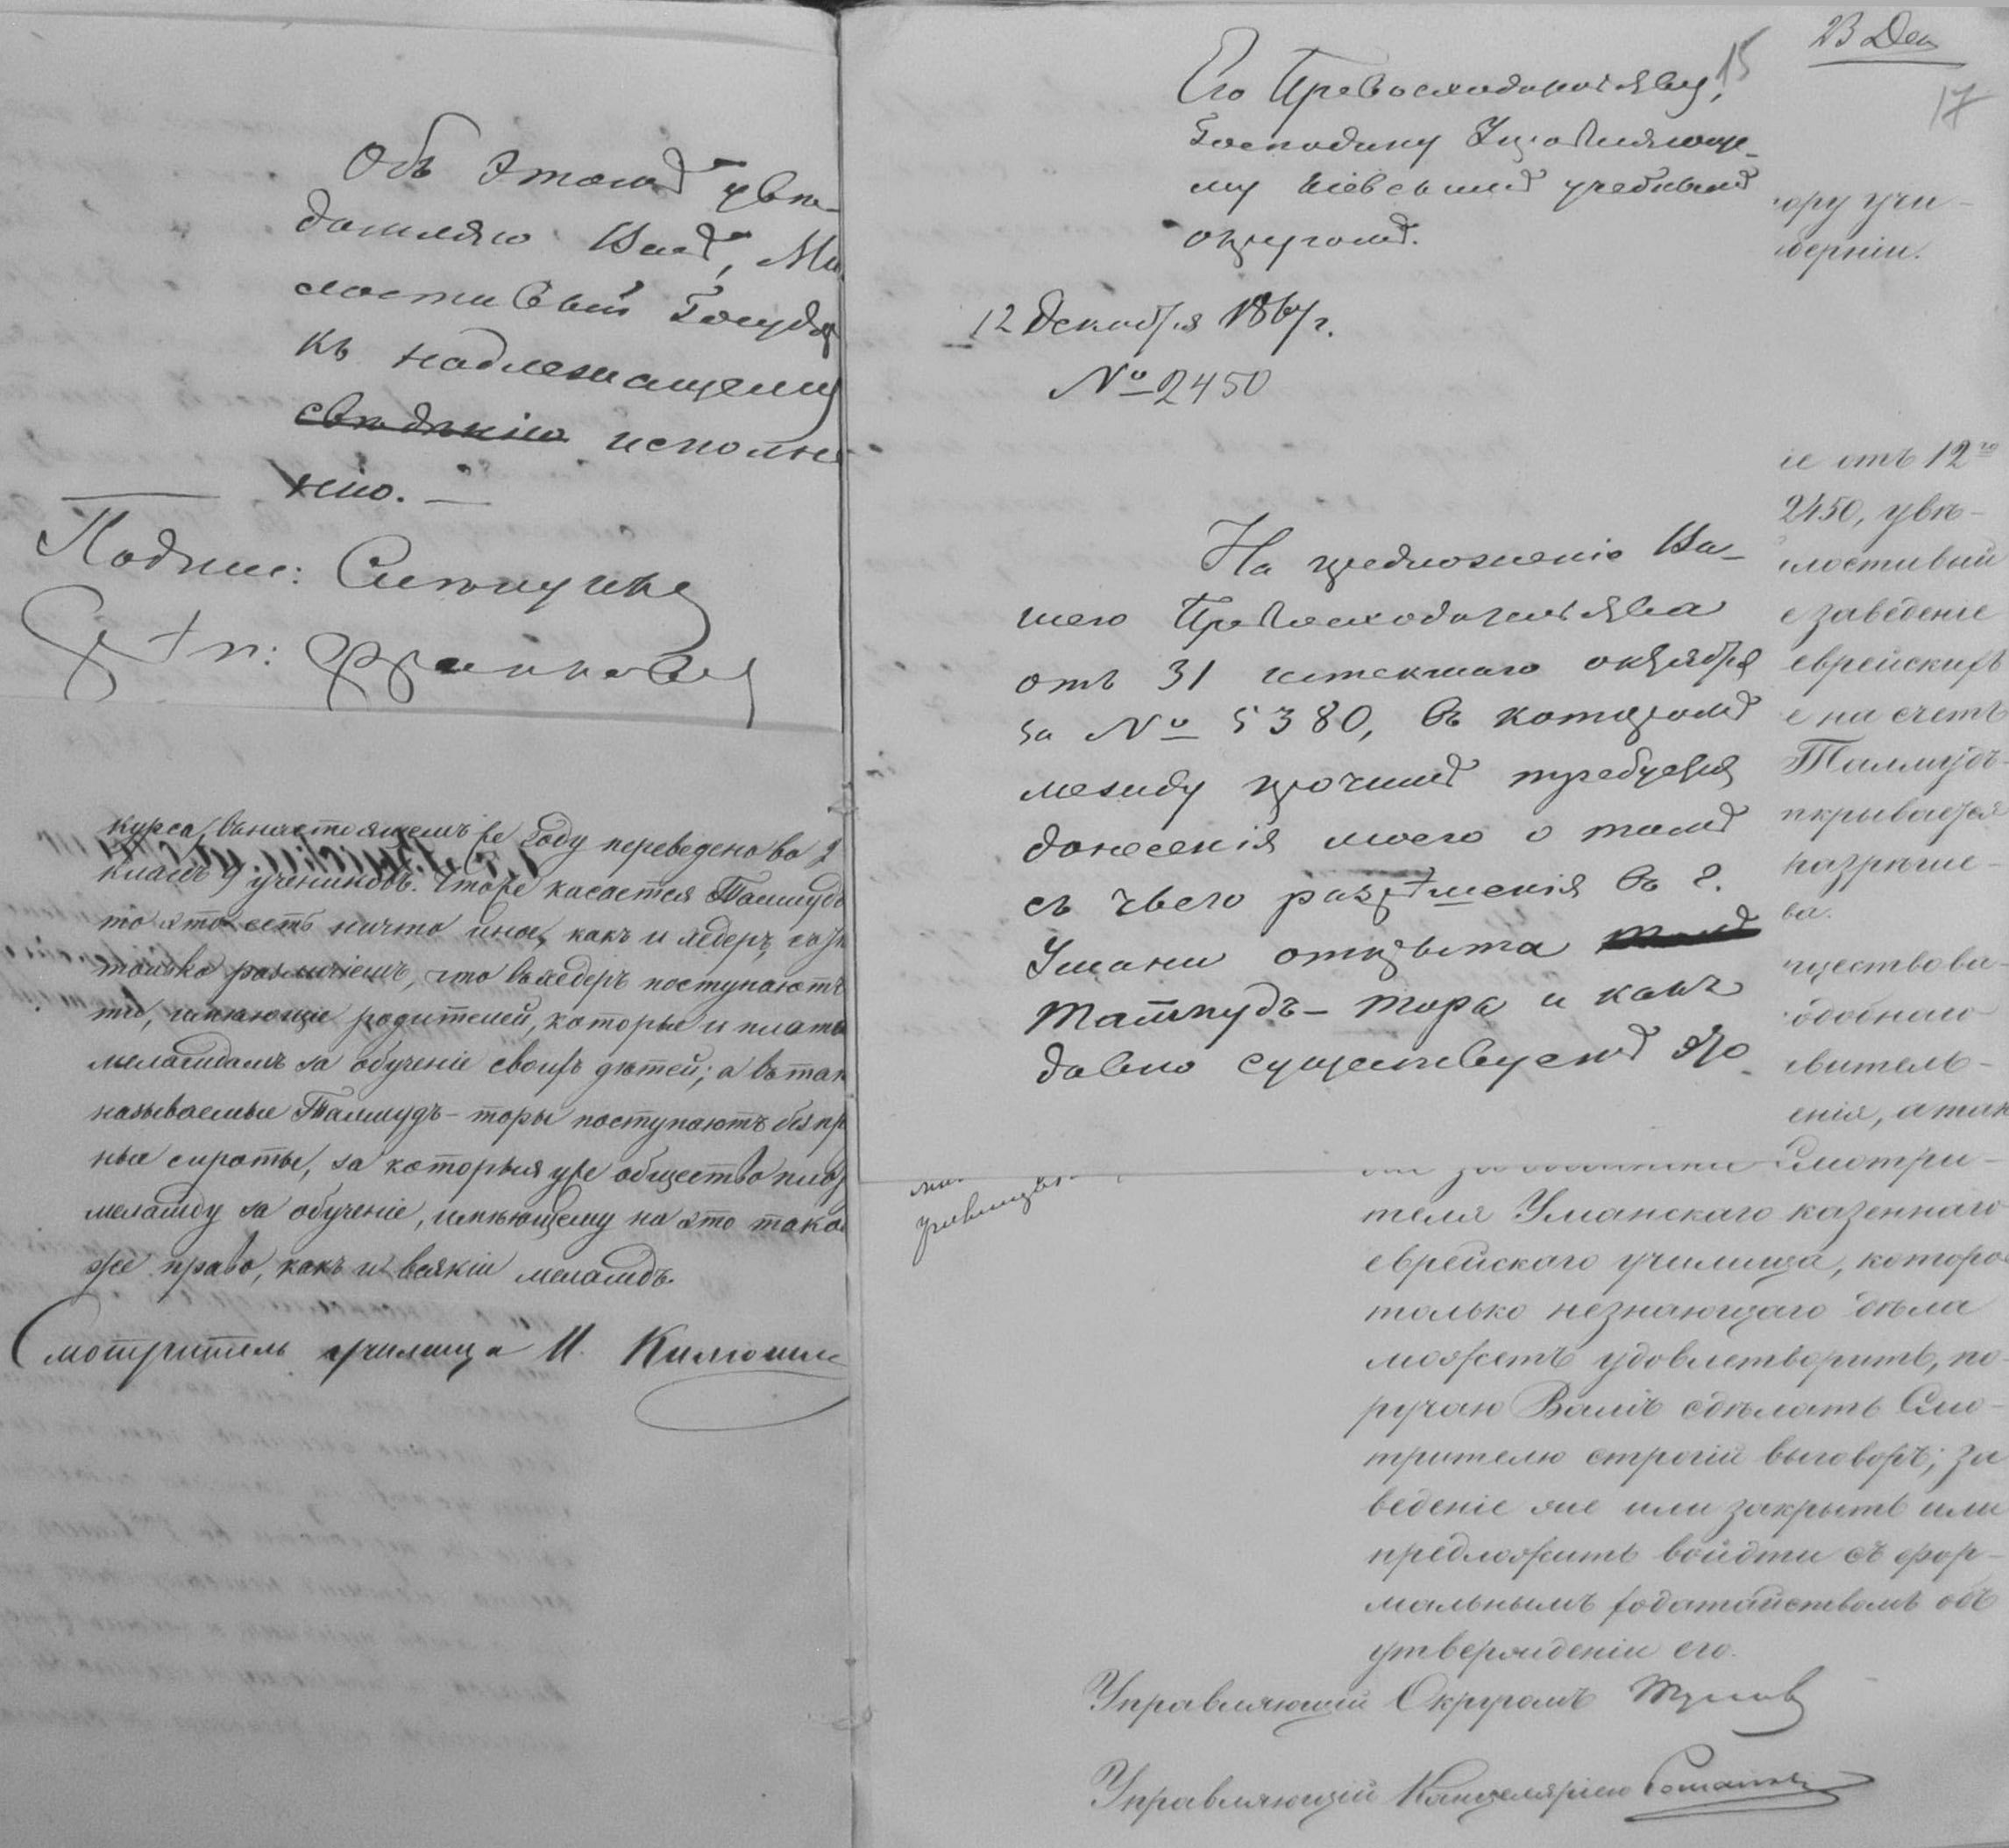 Объ этомъ увѣ-
домляю Васъ, Ми
лостивый Государ
къ надлежащему
свѣдѣнію исполне
нію. —
Подпис:
курса, въ настоящемъ же году переведено во 2
классъ 9 учениковъ. Что же касается Талмудъ
то это есть ничто иное, какъ и хедеръ, съ
только различіемъ, что въ хедеръ поступаютъ
тѣ, имѣющіе родителей, которые и платя
меламдамъ за обученіе своихъ дѣтей; а въ так
называемые Талмудъ-торы поступаютъ безпр
ные сироты, за которыя уже общество плат
меламду за обученіе, имѣющему на это тако
же право, какъ и всякій меламдъ.
Смотритель училища И.
23 Дек
15
17
Его Превосходительству,
Господину Управляюще-
му Кіевскимъ учебнымъ
округомъ.
12 Декабря 1867 г.
№ 2450
На предложеніе Ва-
шего Превосходительства
отъ 31 истекшаго октября
за № 5380, въ которомъ
между прочимъ требуется
донесенія моего о томъ
съ чьего разрѣшенія въ г.
Умани открыта
Талмудъ-тора и какъ
давно существуетъ эта
ору учи-
берніи.
іе отъ 12го
2450, увѣ-
лостивый
е заведеніе
еврейскихъ
е на счетъ
Талмудъ-
ткрывается
разрѣше-
ва.
ществова-
одобною
витель-
енія, а так
Смотри-
теля Уманскаго казеннаго
еврейскаго училища, которое
только незнающаго дѣла
можетъ удовлетворить, по-
ручаю Вамъ сдѣлать Смо-
трителю строгій выговоръ; за
веденіе же или закрыть или
предложить войдти съ фор-
мальнымъ ходатайствомъ объ
утвержденіи его.
училищъ
Управляющій Округомъ
Управляющій Канцеляріею